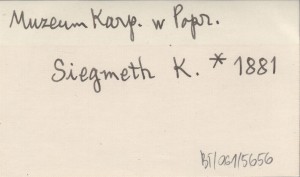 Muzeum Karp. w Popr.
Siegmeth K. * 1881
BT/061/5656